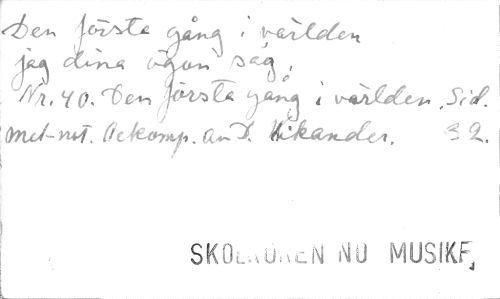 Den första gång i världen
jag dina ögon såg.
Nr. 40. Den första gång i världen. Sid.
met-not. Ackomp. av D. Wikander. 32.
SKOLKÖREN NU MUSIKF